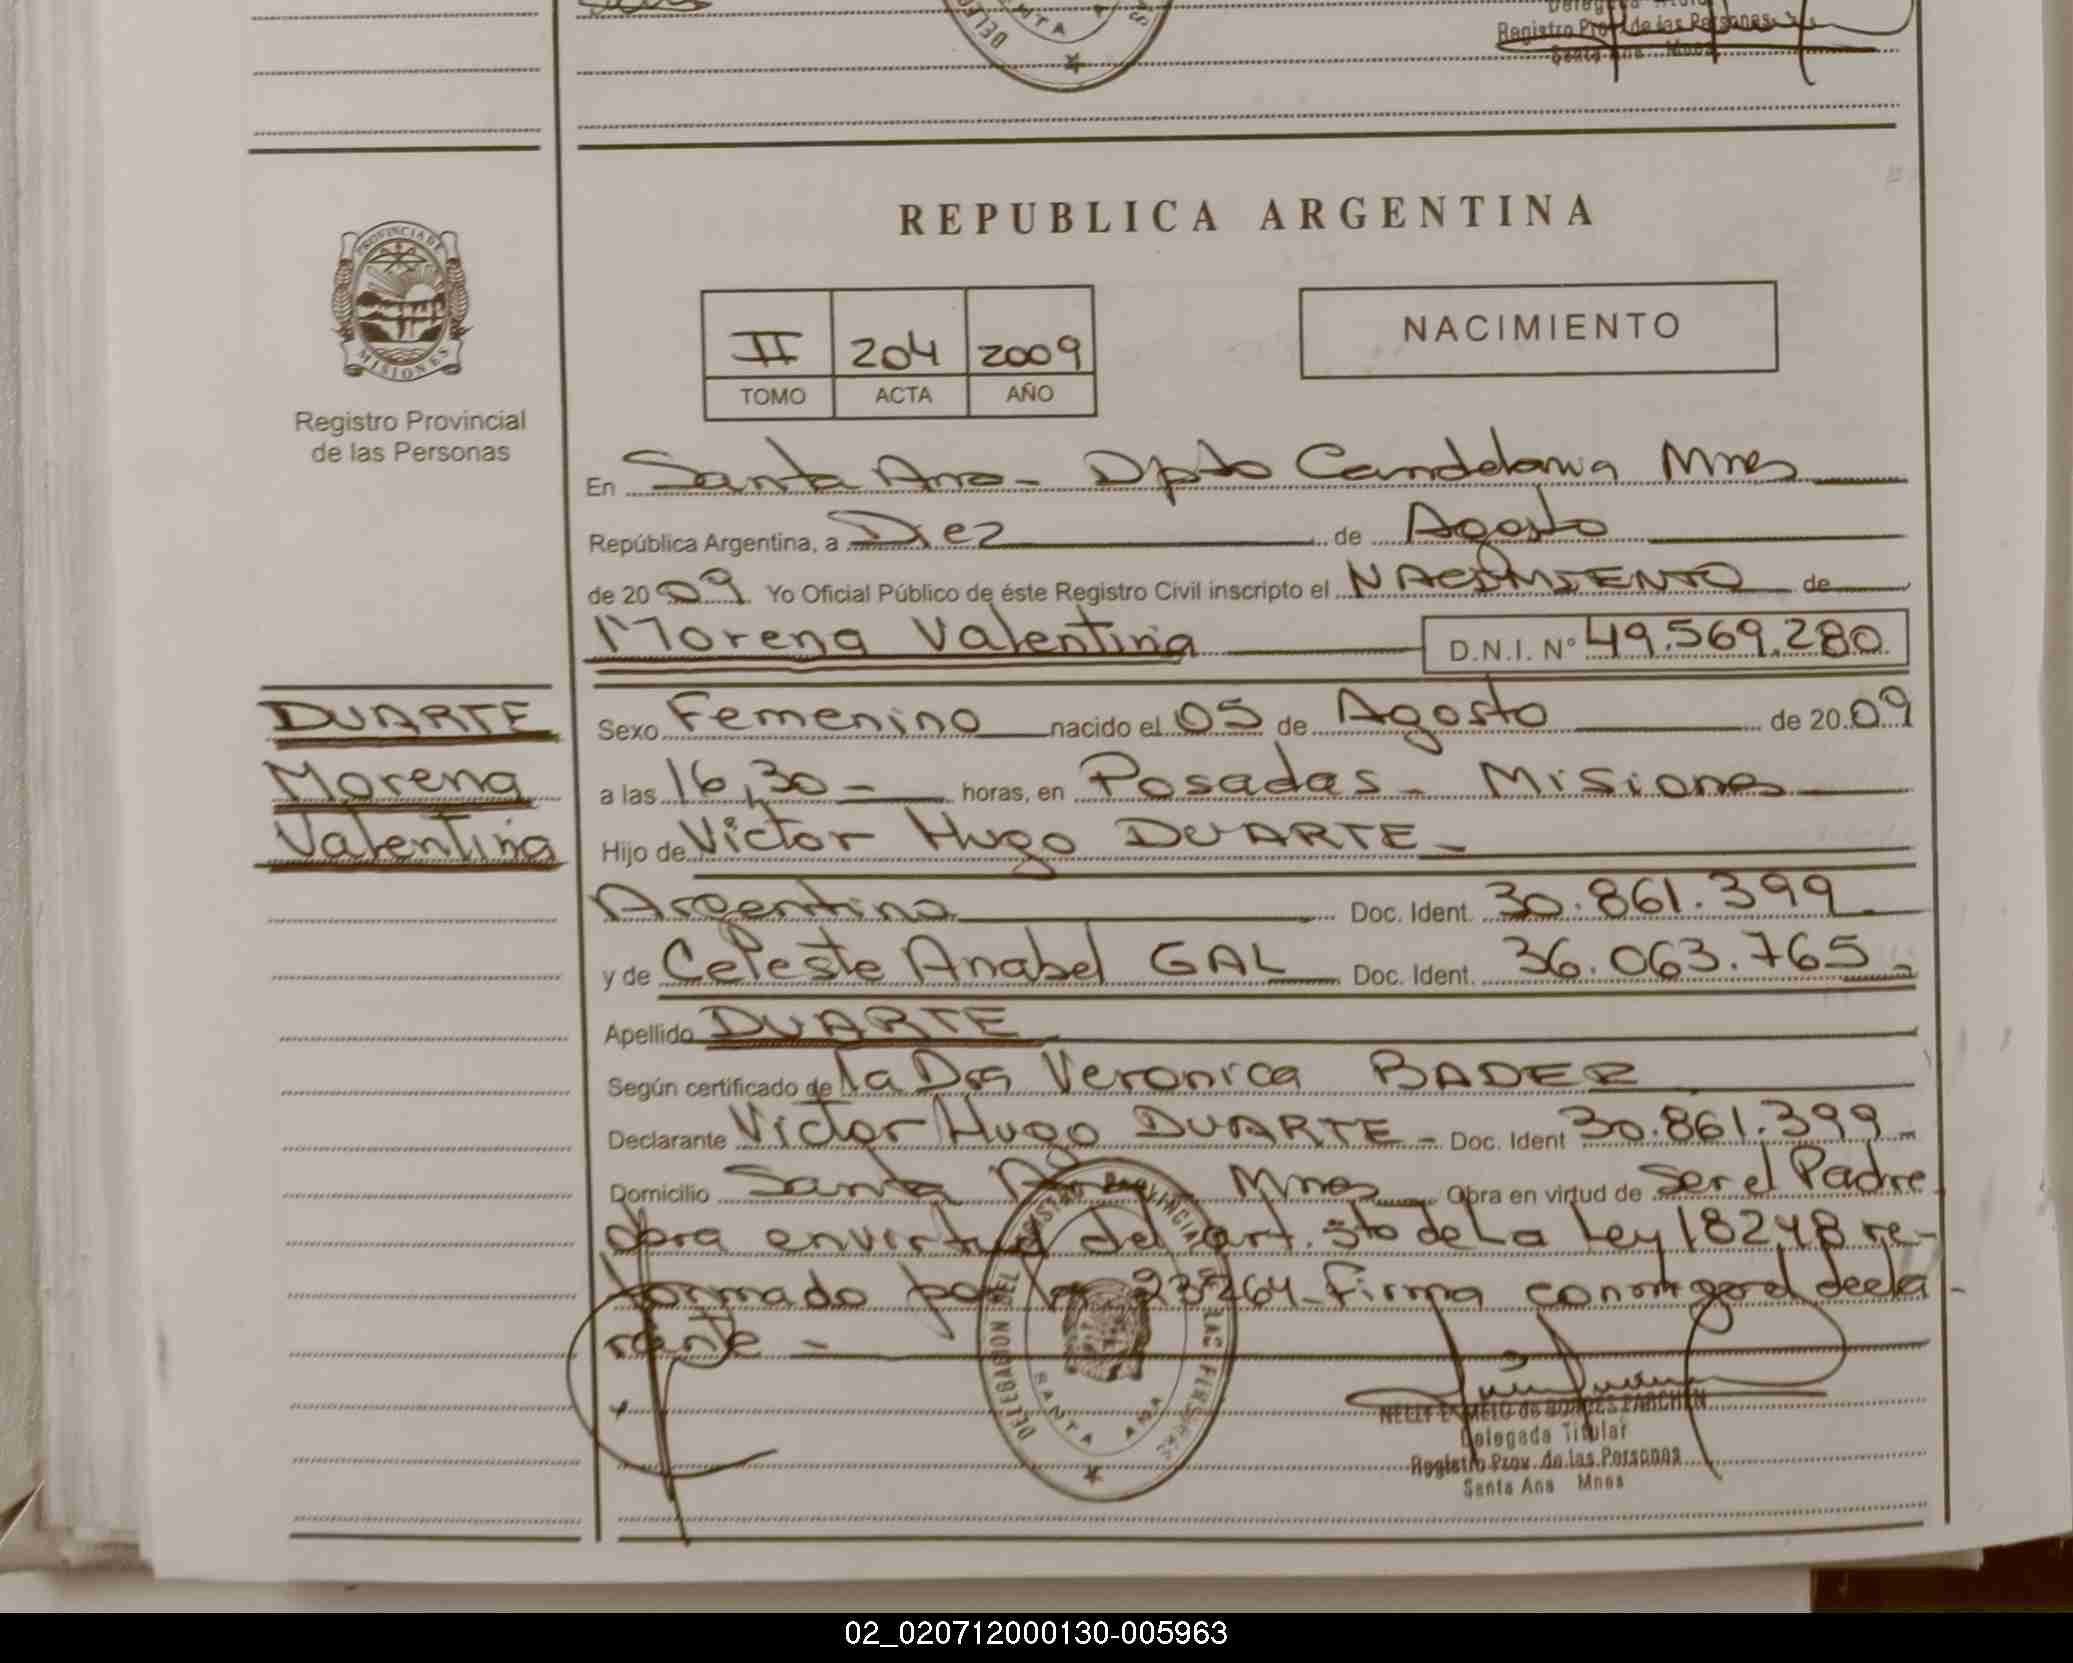 Registro Prov. de las Personas
Santa Ana Mnes
REPUBLICA ARGENTINA
PROVINCIA DE
MISIONES
Registro Provincial
de las Personas
II 204 2009
TOMO ACTA AÑO
NACIMIENTO
En Santa Ana - Dpto Candelaria Mnes
República Argentina, a Diez de Agosto
de 2009 Yo Oficial Público de éste Registro Civil inscripto el NACIMIENTO de
Morena Valentina D.N.I. Nº 49.569.280
DUARTE
Morena
Valentina
Sexo Femenino nacido el 05 de Agosto de 20 09
a las 16,30 - horas, en Posadas - Misiones
Hijo de Victor Hugo DUARTE -
Argentino Doc. Ident. 30.861.399
y de Celeste Anabel GAL Doc. Ident. 36.063.765 -
Apellido DUARTE
Según certificado de la Dra Veronica BADER
Declarante Victor Hugo DUARTE - Doc. Ident 30.861.399 -
Domicilio Santa Ana Mnes Obra en virtud de ser el Padre
obra en virtud del art. 5to de La Ley 18248 re-
formado por la 23264 - Firma conmigo el decla-
rante -
DELEGACION DEL
SANTA ANA
Delegada Titular
Registro Prov. de las Personas
Santa Ana Mnes
02_020712000130-005963